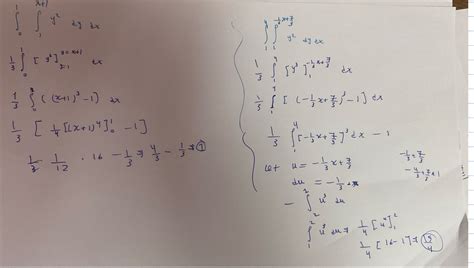 ∫₀¹ ∫₁ˣ⁺¹ y² dy dx
1/3 ∫₀¹ [y³]ʸ⁼ˣ⁺¹ dx
1/3 ∫₀ ((x+1)³ - 1) dx
1/3 [1/4 [(x+1)⁴]₀¹ - 1]
1/12 · 16 - 1/3 ⇒ 4/3 - 1/3 ⇒ 1
∫₁⁴ ∫₁^(-1/3x+7/3) y² dy dx
1/3 ∫₁⁴ [y³]₁^(-1/3x+7/3) dx
1/3 ∫₁⁴ [(-1/3x+7/3)³ - 1] dx
1/3 ∫₁⁴ [-1/3x+7/3]³ dx - 1
let u = -1/3x+7/3
-1/3+7/3
du = -1/3 dx
-4/3+7/3 = 1
- ∫₂ u³ du
∫₁² u³ du ⇒ 1/4 [u⁴]₁²
1/4 [16-1] ⇒ 15/4